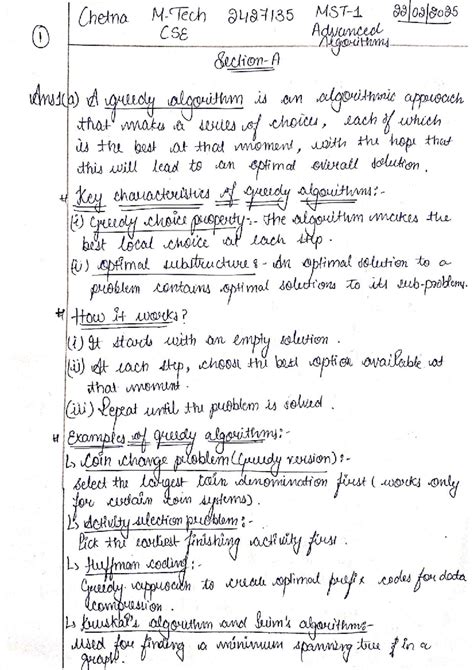 Chetna M-Tech 2427135 MST-1 22/02/2025
CSE Advanced
Algorithms
①
Section-A
Ans1(a) A greedy algorithm is an algorithmic approach
that makes a series of choices, each of which
is the best at that moment, with the hope that
this will lead to an optimal overall solution.
# Key characteristics of greedy algorithms:-
(i) Greedy choice property:- The algorithm makes the
best local choice at each step.
(ii) optimal substructure:- An optimal solution to a
problem contains optimal solutions to its sub-problems.
# How it works?
(i) It starts with an empty solution.
(ii) At each step, choose the best option available at
that moment.
(iii) Repeat until the problem is solved.
# Examples of greedy algorithms:-
↳ Coin change problem (Greedy version):-
Select the largest coin denomination first (works only
for certain coin systems).
↳ Activity selection problem:-
Pick the earliest finishing activity first.
↳ Huffman coding:-
Greedy approach to create optimal prefix codes for data
compression.
↳ Kruskal's algorithm and Prim's algorithm:-
Used for finding a minimum spanning tree in a
graph.